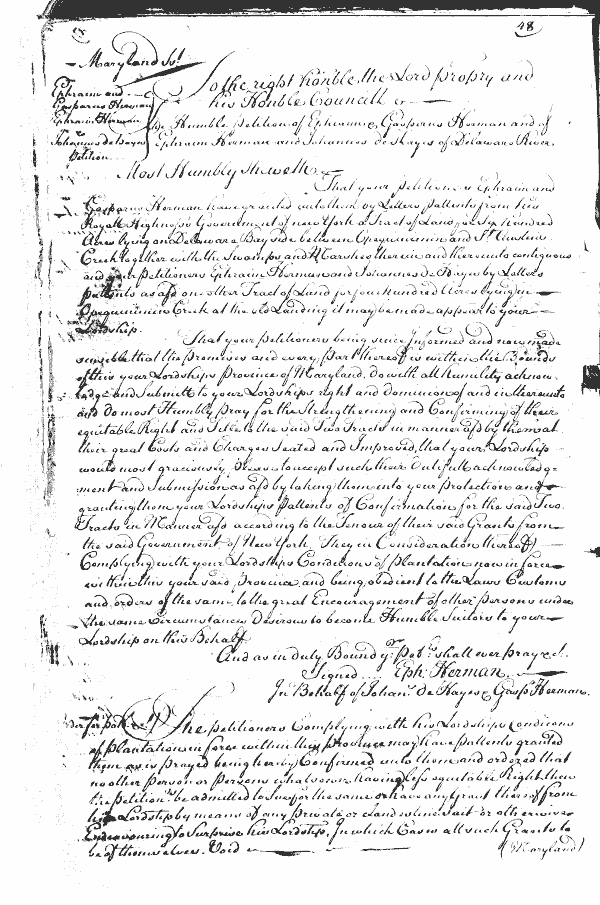 48
Maryland Ss.
Ephraim and
Gasparus Herman
Ephraim Herman
&
Johannes de Hayes
Petition
To the right honble the Lord Propry and
his Honble Councill &c
The Humble Petition of Ephraim & Gasparus Herman and of
Ephraim Herman and Johannes de Hayes of Delaware River
Most Humbly Sheweth
That your Petitioners Ephraim and
Gasparus Herman have granted unto them by Letters Pattents from his
Royall Highness's Government of new York a Tract of Land for Six hundred
Acres lying on Delaware Bay side between Opequimimin and St Austins
Creek together with the Swamps and Marshes therein and thereunto contiguous
and your Petitioners Ephraim Herman and Johannes de Hayes by Letters
Pattents as afsd on other Tract of Land for four hundred Acres lying in
Opequiminin Creek at the old Landing it may be made appear to your
Lordship.
That your Petitioners being since Informed and now made
sensible that the Premises and every part thereof is within the Bounds
of this your Lordships Province of Maryland, do with all humility acknow
ledge and Submit to your Lordships right and Dominion of and in thereunto
and do most Humbly pray for the Strengthening and Confirming of their
equitable Right and Title to the said Two Tracts in manner afsd by them at
their great Costs and Charges Seated and Improved, that your Lordship
would most graciously please to accept such their Dutifull acknowledg-
ment and Submission as afsd by taking them into your Protection and
granting them your Lordships Pattents of Confirmation for the said Two
Tracts in Manner afsd according to the Tenour of their said Grants from
the said Government of New York They in Consideration thereof
Complying with your Lordships Conditions of Plantation now in force
within this your said Province, and being obedient to the Laws Customs
and orders of the same, to the great Encouragement of other Persons under
the same Circumstances Desirous to become Humble Suitors to your
Lordship on this Behalf
And as in duty Bound yr Petrs shall ever pray &c.
Signed ... Eph: Herman
In Behalf of Johans de Hayes & Gaspr Herman.
The Petitioners Complying with his Lordships Conditions
of Plantation in force within this Province may have Pattents granted
them as is Prayed being hereby Confirmed unto them and ordered that
no other Person or Persons whatsoever having less equitable Right then
the Petitionrs be admitted to Sue for the same or have any Grant thereof from
his Lordship by means of any Private or clandestine Suit or otherwise
Endeavouring to Surprise his Lordship, In which Case all such Grants to
be of themselves Void
(Maryland)